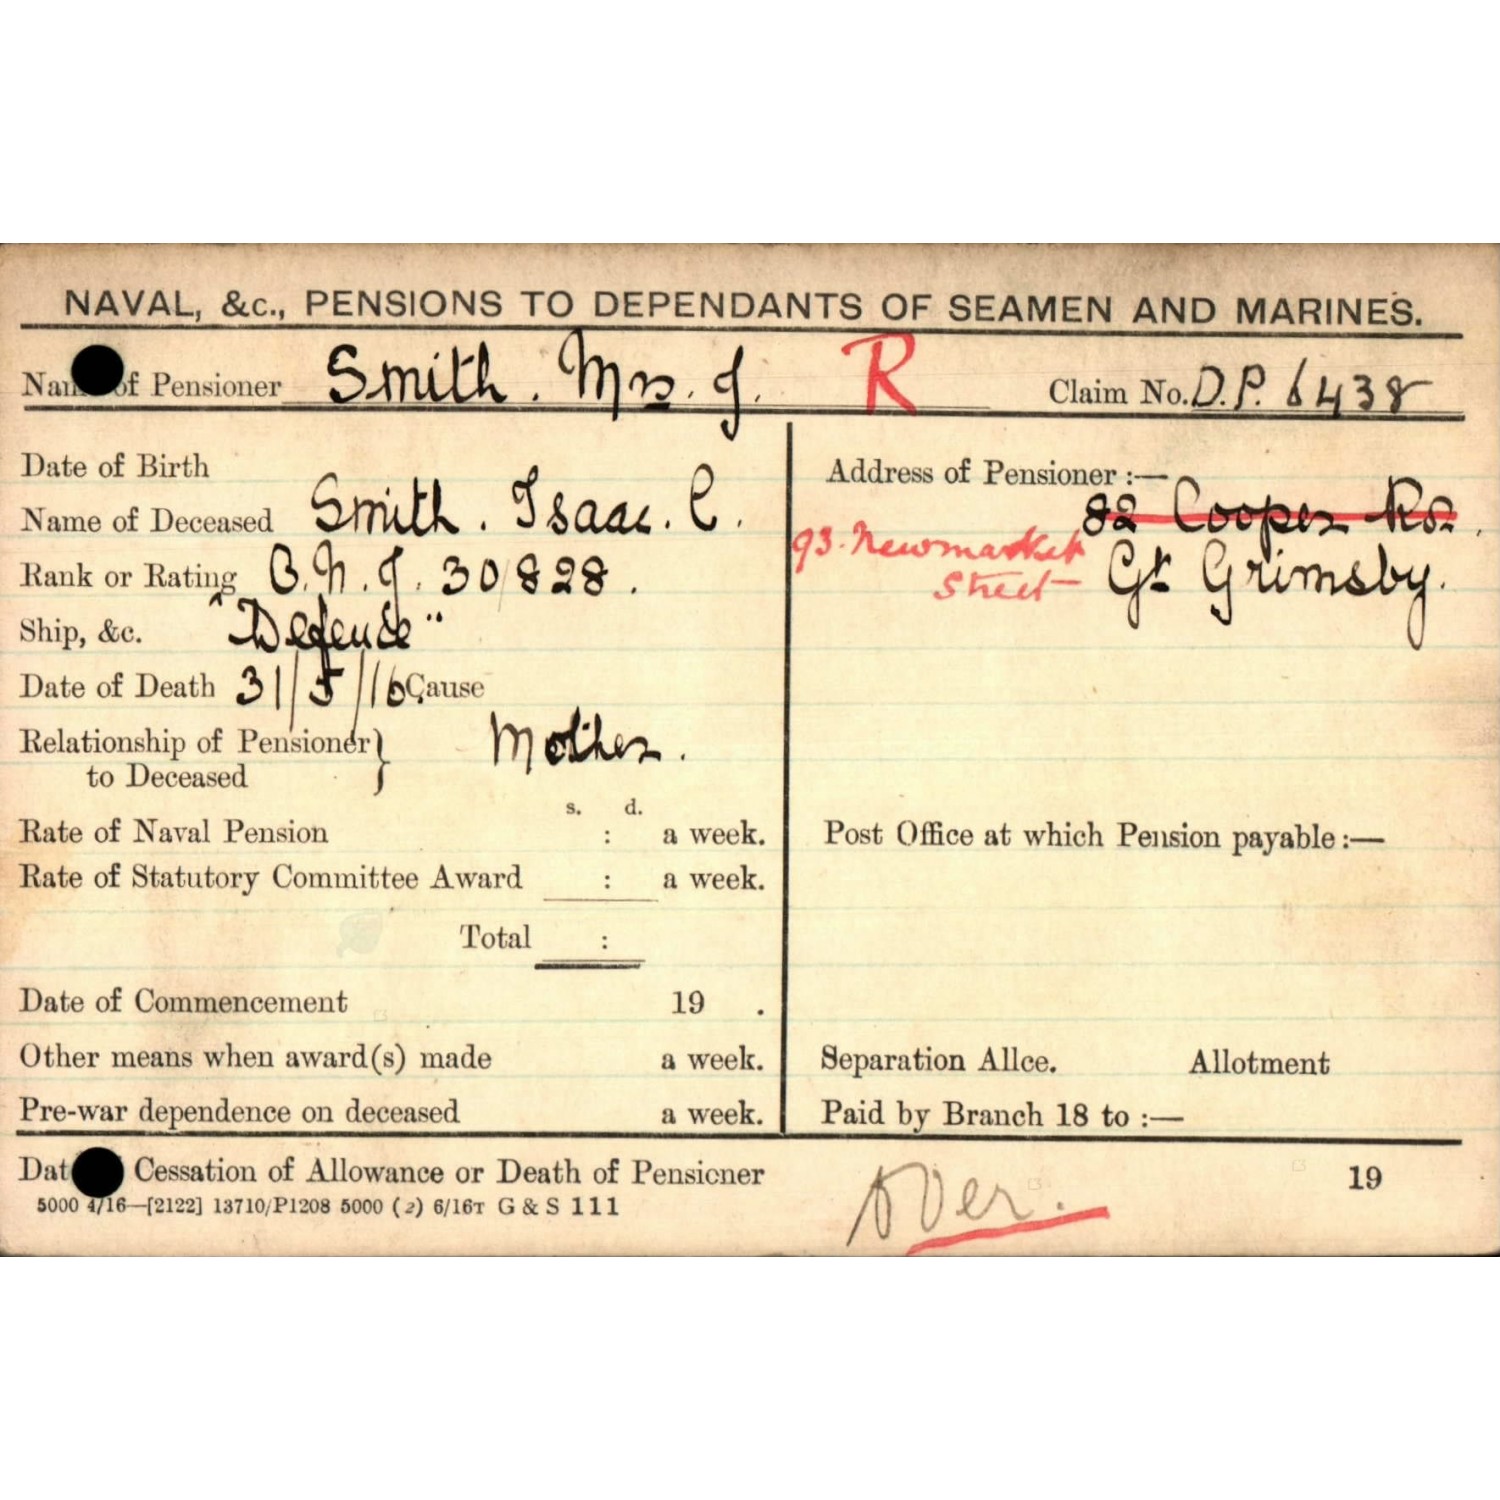 NAVAL, &c., PENSIONS TO DEPENDANTS OF SEAMEN AND MARINES.
Name of Pensioner Smith. Mrs. J. R Claim No. D.P. 6438
Date of Birth
Name of Deceased Smith. Isaac. C.
Rank or Rating O.N.J. 30828.
Ship, &c. "Defence"
Date of Death 31/5/16 Cause
Relationship of Pensioner } Mother.
to Deceased
s. d.
Rate of Naval Pension : a week.
Rate of Statutory Committee Award : a week.
Total :
Date of Commencement 19 .
Other means when award(s) made a week.
Pre-war dependence on deceased a week.
Address of Pensioner :—
82 Cooper Rd.
93. Newmarket
Street Gt Grimsby.
Post Office at which Pension payable :—
Separation Allce. Allotment
Paid by Branch 18 to :—
Dat Cessation of Allowance or Death of Pensioner 19
5000 4/16—[2122] 13710/P1208 5000 (2) 6/16T G & S 111
Over.